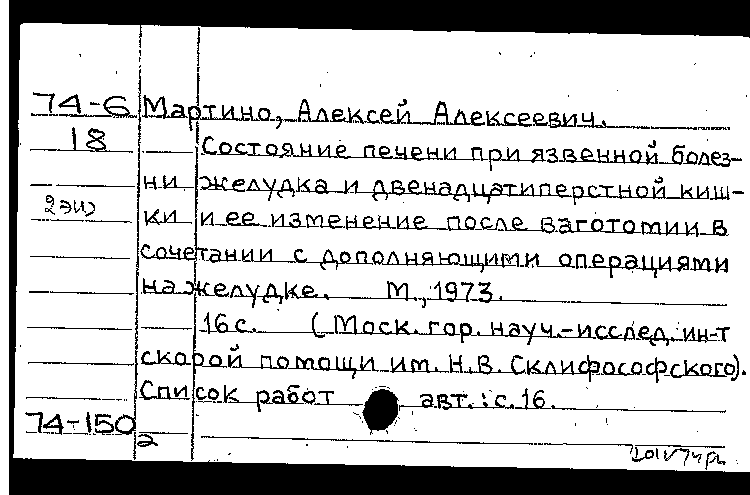 74-6 Мартино, Алексей Алексеевич.
18 Состояние печени при язвенной болез-
ни желудка и двенадцатиперстной киш-
2 экз ки и ее изменение после ваготомии в
сочетании с дополняющими операциями
на желудке. М., 1973.
16 с. (Моск. гор. науч.-исслед. ин-т
скорой помощи им. Н.В. Склифософского).
Список работ авт.: с. 16.
74-150
2